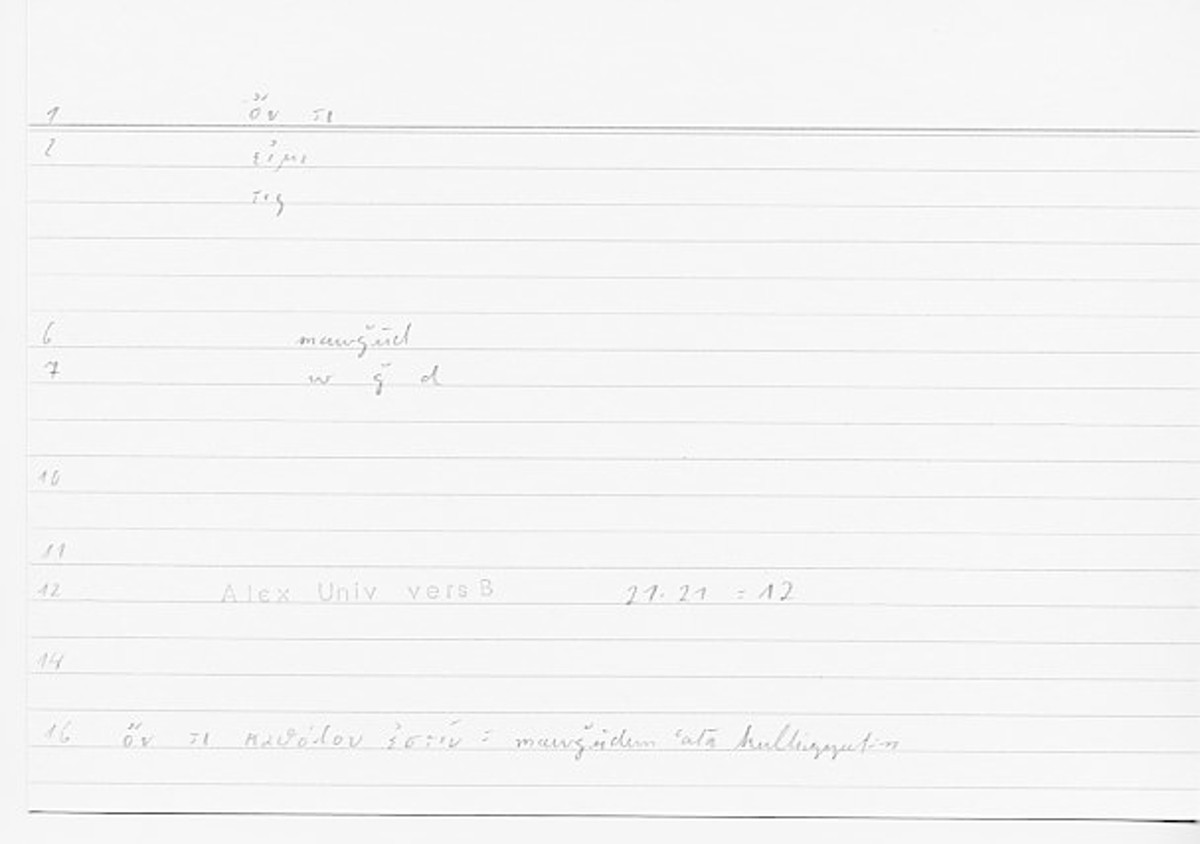 1 ὄν τι
2 εἰμι
τις
6 mawǧūd
7 w ǧ d
10
11
12 Alex Univ vers B 21.21 = 12
14
16 ὄν τι καθόλου ἐστίν = mawǧūdun ʿalā kulliyyatin